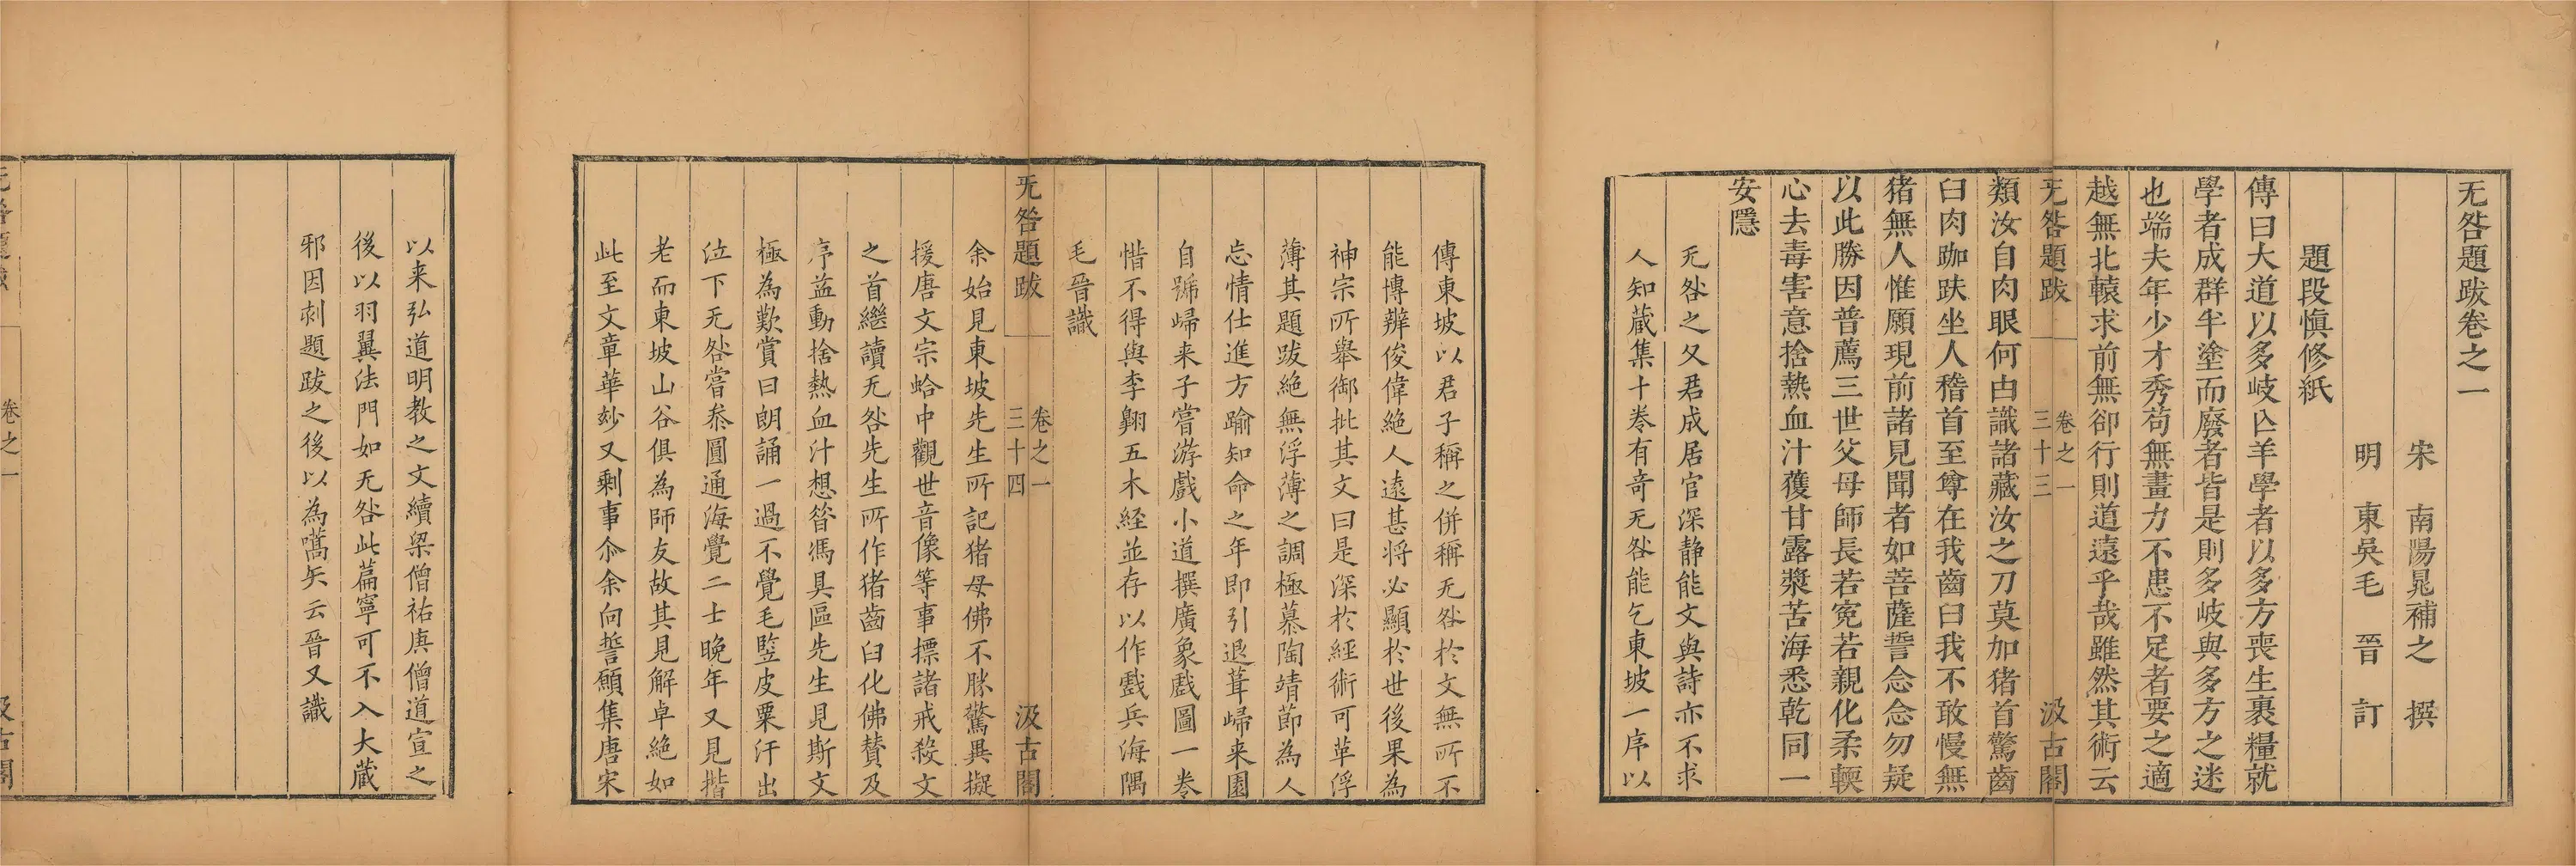 无咎題跋卷之一
宋 南陽晁補之 撰
明 東吳毛 晉 訂
題段慎修紙
傳曰大道以多岐亾羊學者以多方喪生裹糧就
學者成群半塗而廢者皆是則多岐與多方之迷
也端夫年少才秀苟無畫力不患不足者要之適
越無北轅求前無卻行則道遠乎哉雖然其術云
无咎題跋 卷之一 三十三 汲古閣
類汝自肉眼何由識諸藏汝之刀莫加猪首驚齒
臼肉跏趺坐人稽首至尊在我齒臼我不敢慢無
猪無人惟願現前諸見聞者如菩薩誓念念勿疑
以此勝因普薦三世父母師長若寃若親化柔輭
心去毒害意捨熱血汁獲甘露漿苦海悉乾同一
安隱
无咎之父君成居官深静能文與詩亦不求
人知蔵集十卷有奇无咎能乞東坡一序以
傳東坡以君子稱之併稱无咎於文無所不
能博辯俊偉絶人遠甚将必顯於世後果為
神宗所舉御批其文曰是深於經術可革浮
薄其題跋絶無浮薄之調極慕陶靖節為人
忘情仕進方踰知命之年即引退葺歸来園
自號歸来子嘗游戲小道撰廣象戲圖一卷
惜不得與李翺五木經並存以作戲兵海隅
毛晉識
无咎題跋 卷之一 三十四 汲古閣
余始見東坡先生所記猪母佛不勝驚異擬
援唐文宗蛤中觀世音像等事摽諸戒殺文
之首繼讀无咎先生所作猪齒臼化佛贊及
序益動捨熱血汁想昝馮具區先生見斯文
極為歎賞曰朗誦一過不覺毛竪皮粟汗出
泣下无咎嘗叅圓通海覺二士晚年又見揩
老而東坡山谷俱為師友故其見解卓絶如
此至文章華妙又剩事尒余向誓願集唐宋
以来弘道明教之文續梁僧祐唐僧道宣之
後以羽翼法門如无咎此篇寧可不入大蔵
邪因刺題跋之後以為嚆矢云晉又識
无咎題跋 卷之一 汲古閣